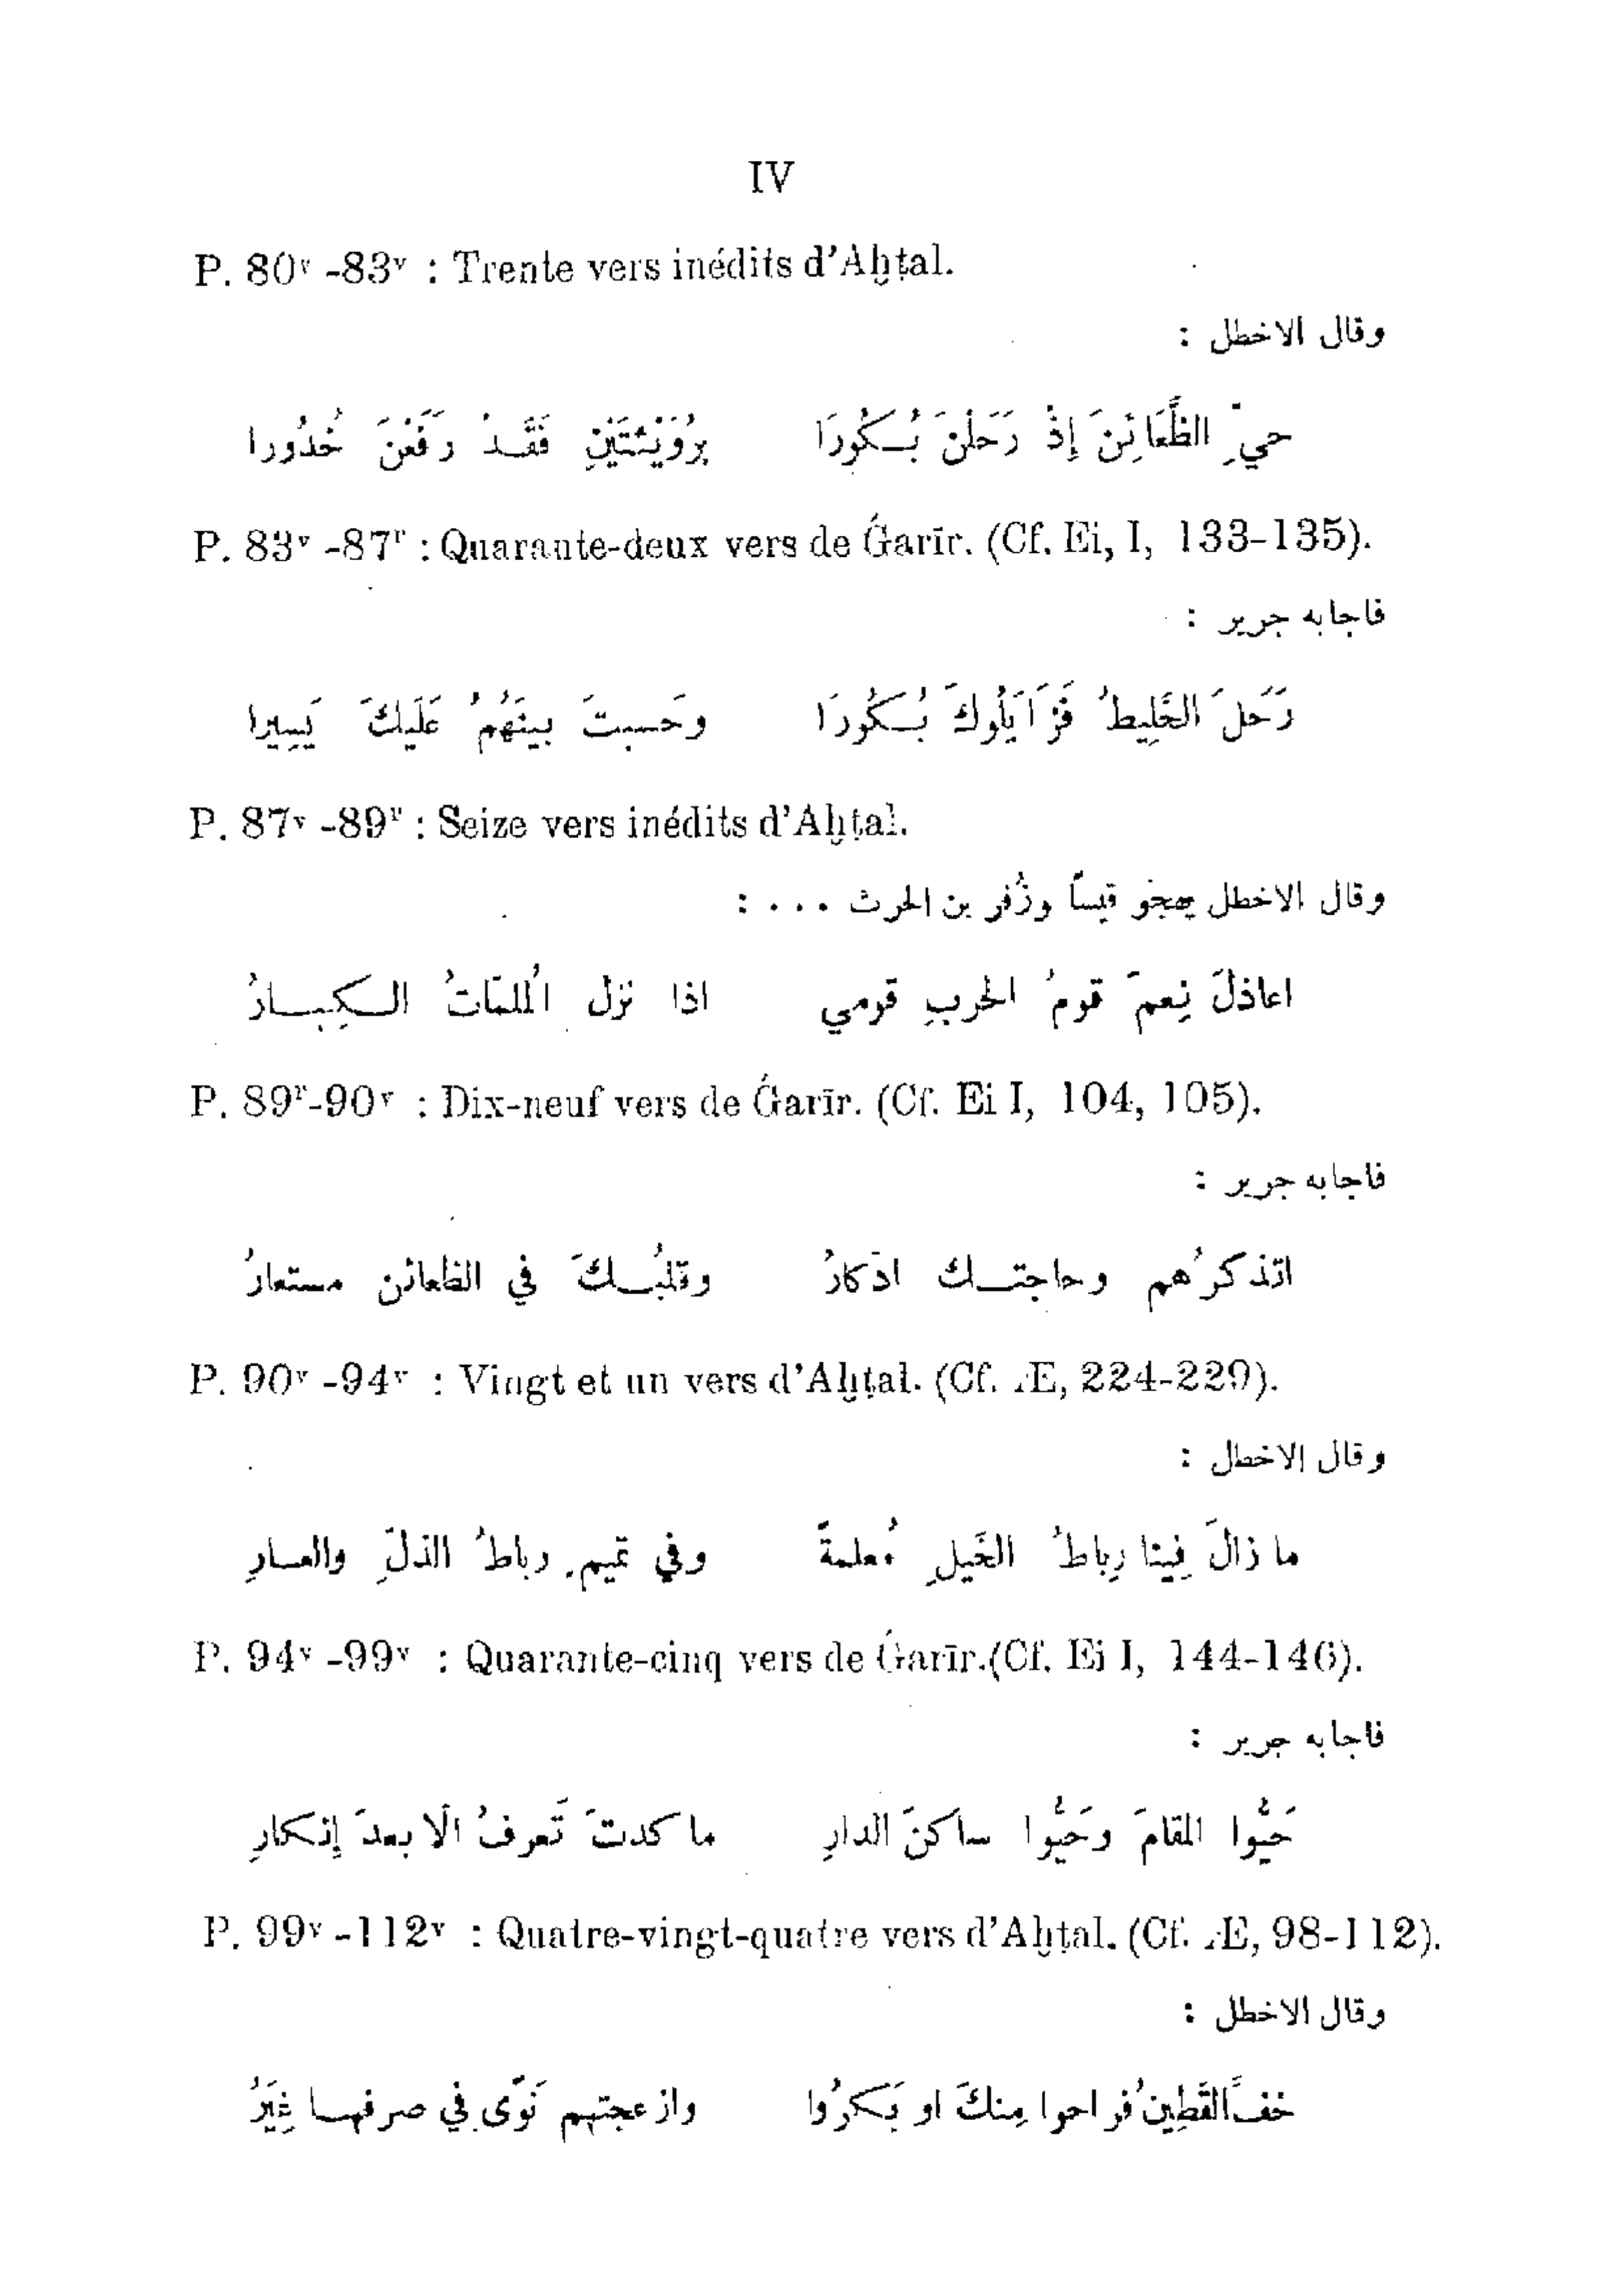 IV
P. 80ᵛ -83ᵛ : Trente vers inédits d'Aḫṭal.
وقال الاخطل :
حيِّ الظَّعَائِنَ إِذْ رَحَلْنَ بُكُورَا بِرُوَيْثَتَيْنِ فَقَدْ رَفَعْنَ خُدُورا
P. 83ᵛ -87ʳ : Quarante-deux vers de Ǵarīr. (Cf. Ei, I, 133-135).
فاجابه جرير :
رَحَلَ الخَلِيطُ فَزَايَلُوكَ بُكُورَا وحَسبتَ بينَهُمُ عَلَيكَ يَسِيرا
P. 87ᵛ -89ʳ : Seize vers inédits d'Aḫṭal.
وقال الاخطل يهجو قيساً وزُفر بن الحرث . . . :
اعاذلَ نِعمَ قومُ الحربِ قومي اذا نزل المُلمَّاتُ الكِبارُ
P. 89ʳ-90ᵛ : Dix-neuf vers de Ǵarīr. (Cf. Ei I, 104, 105).
فاجابه جرير :
اتذكرُهم وحاجتك ادّكارُ وقلبُكَ في الظعائن مستعارُ
P. 90ᵛ -94ᵛ : Vingt et un vers d'Aḫṭal. (Cf. Æ, 224-229).
وقال الاخطل :
ما زالَ فِينا رِباطُ الخَيلِ مُعلمةً وفي تميم رباطُ الذلِّ والعارِ
P. 94ᵛ -99ᵛ : Quarante-cinq vers de Ǵarīr.(Cf. Ei I, 144-146).
فاجابه جرير :
حَيُّوا المقامَ وحَيُّوا ساكنَ الدارِ ما كدتَ تَعرفُ الّا بعدَ إِنكارِ
P. 99ᵛ -112ᵛ : Quatre-vingt-quatre vers d'Aḫṭal. (Cf. Æ, 98-112).
وقال الاخطل :
خفَّ القَطِينُ فراحوا مِنكَ او بَكَرُوا وازعجتهم نَوًى في صرفها غِيَرُ